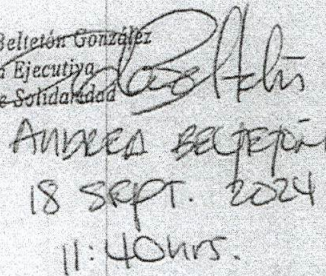 Beltetón González
a Ejecutiva
e Solidaridad
ANDREA BELTETÓN
18 SEPT. 2024
11:40hrs.